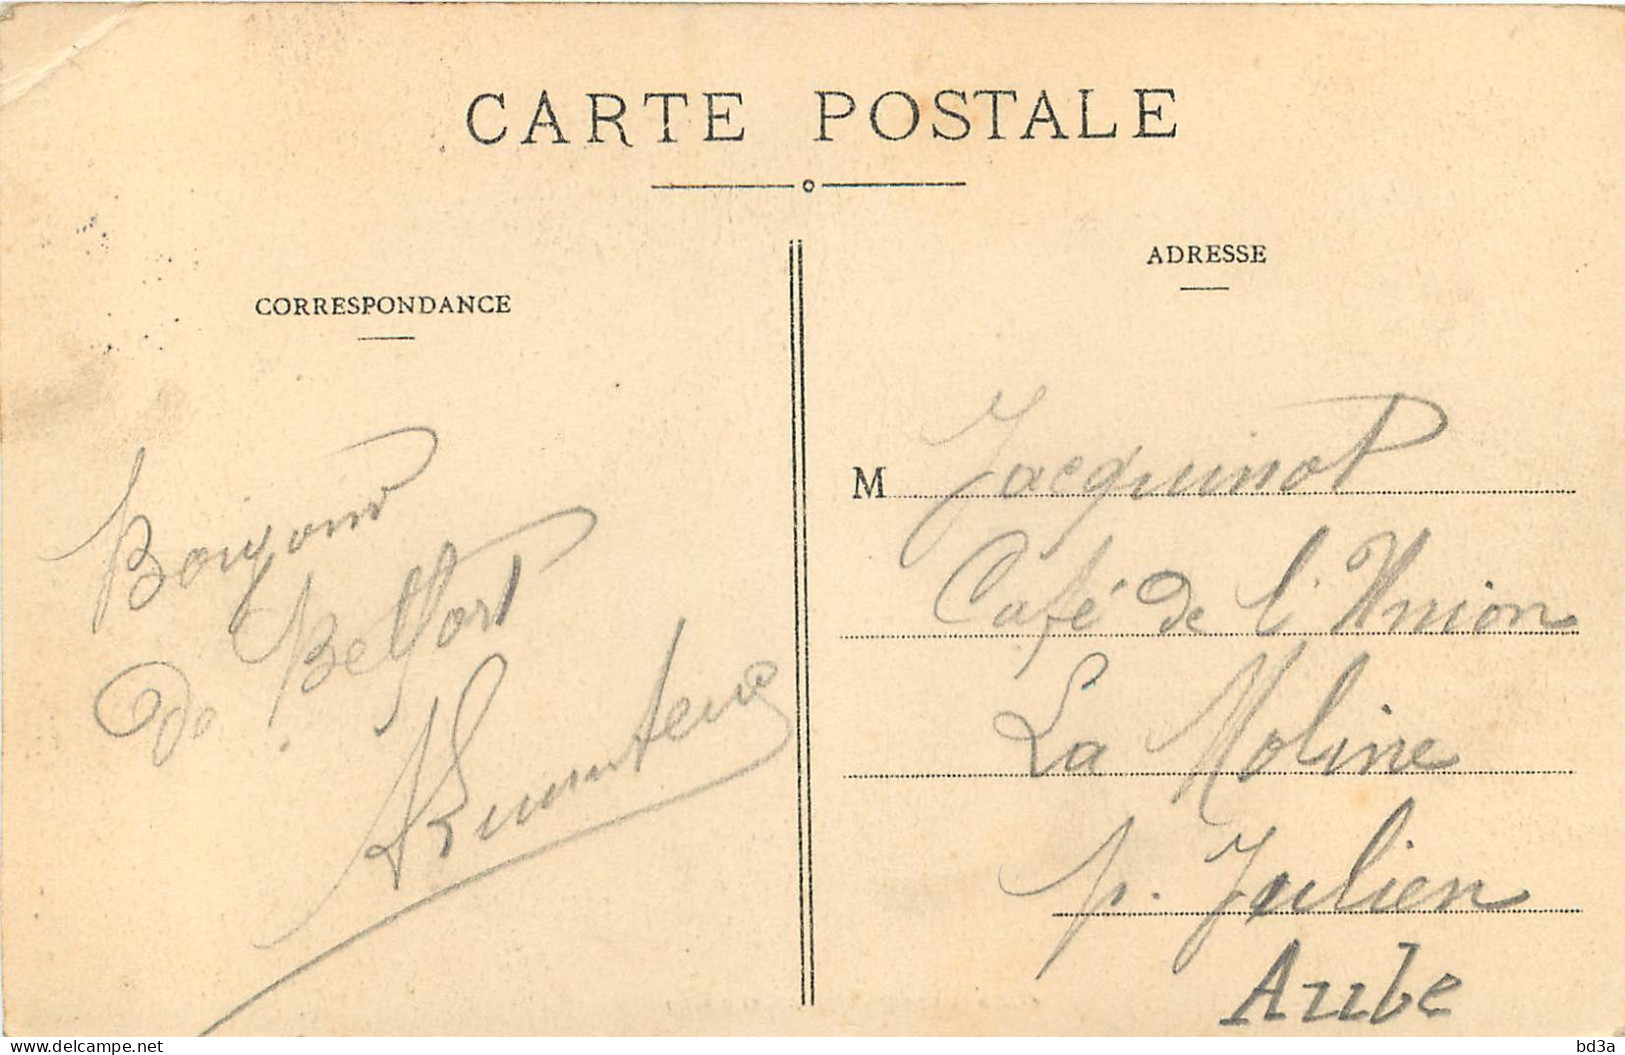 CARTE POSTALE
CORRESPONDANCE
Bonjour
de Belfort
ADRESSE
M Jacquinot
Café de l'Union
La Moline
p. Julien
Aube
www.delcampe.net
bd3a